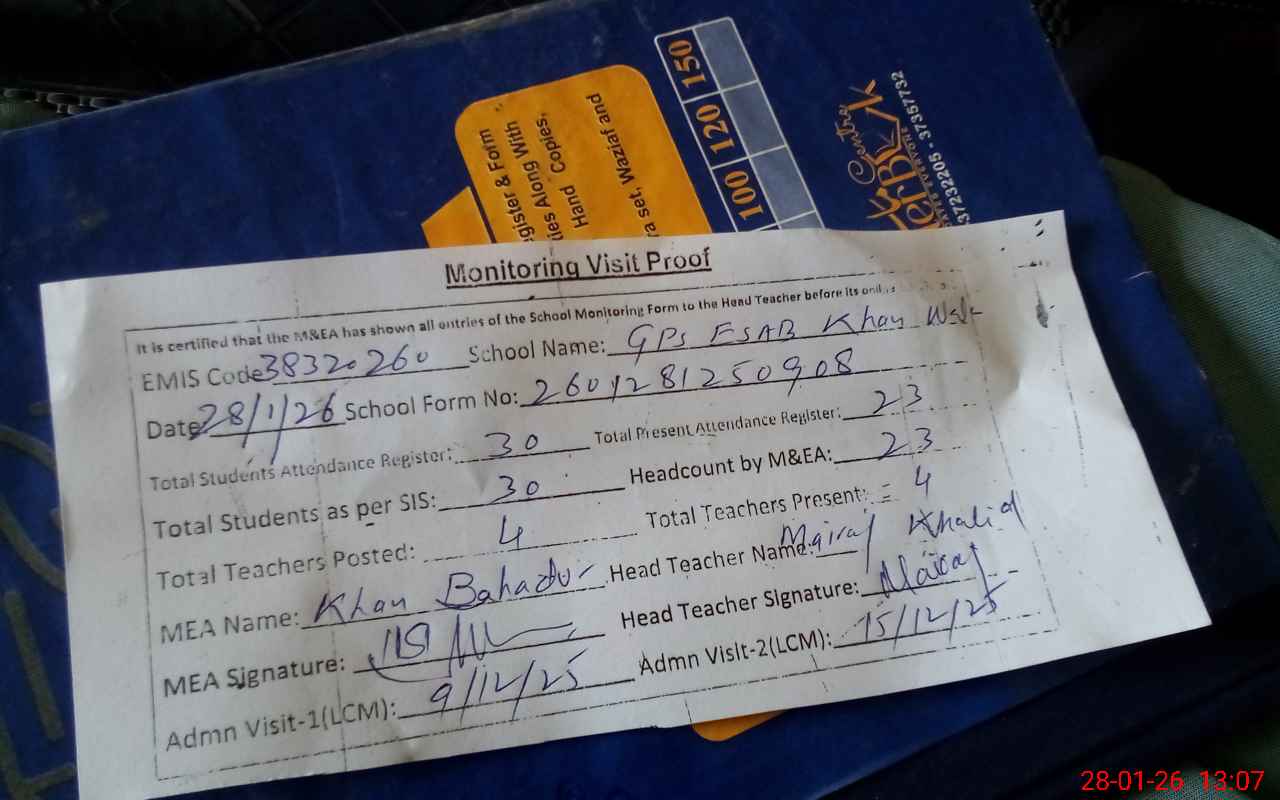 150
120
100
Register & Form
ties Along With
Hand Copies,
set, Waziaf and
Centre
EVERYONE
37232205 - 37357732
Monitoring Visit Proof
It is certified that the M&EA has shown all entries of the School Monitoring Form to the Head Teacher before its
EMIS Code 38320260 School Name: GPS ESAB Khan Wala
Date 28/1/26 School Form No: 2601281250908
Total Students Attendance Register: 30 Total Present Attendance Register: 23
Total Students as per SIS: 30 Headcount by M&EA: 23
Total Teachers Posted: 4 Total Teachers Present: = 4
MEA Name: Khan Bahadur Head Teacher Name: Mairaj Khalid
MEA Signature: Head Teacher Signature: Mairaj
Admn Visit-1(LCM): 9/12/25 Admn Visit-2(LCM): 15/12/25
28-01-26 13:07